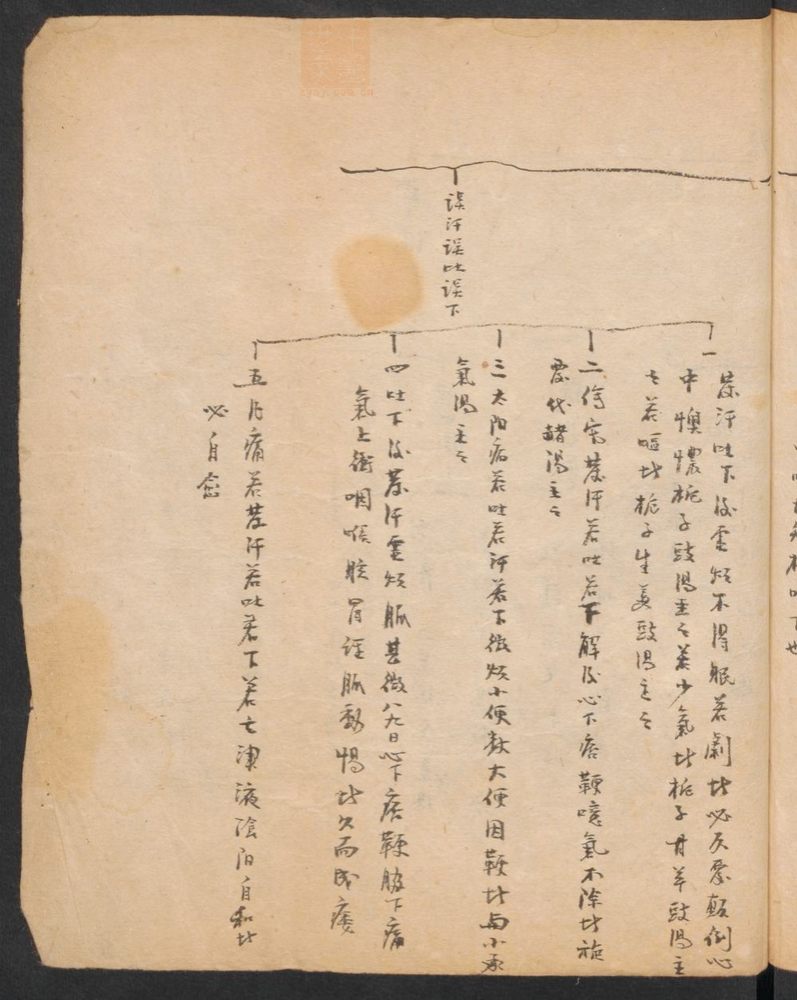 误汗误吐误下
一
发汗吐下后虚烦不得眠若剧者必反覆颠倒心
中懊憹栀子豉汤主之若少气者栀子甘草豉汤主
之若呕者栀子生姜豉汤主之
二伤寒发汗若吐若下解后心下痞鞕噫氣不除者旋
覆代赭湯主之
三太阳病若吐若汗若下微烦小便数大便因鞕者与小承
氣湯主之
四吐下后发汗虚烦脈甚微八九日心下痞鞕脇下痛
氣上衝咽喉眩冒经脈動惕者久而成痿
五凡病若发汗若吐若下若亡津液陰阳自和者
必自愈